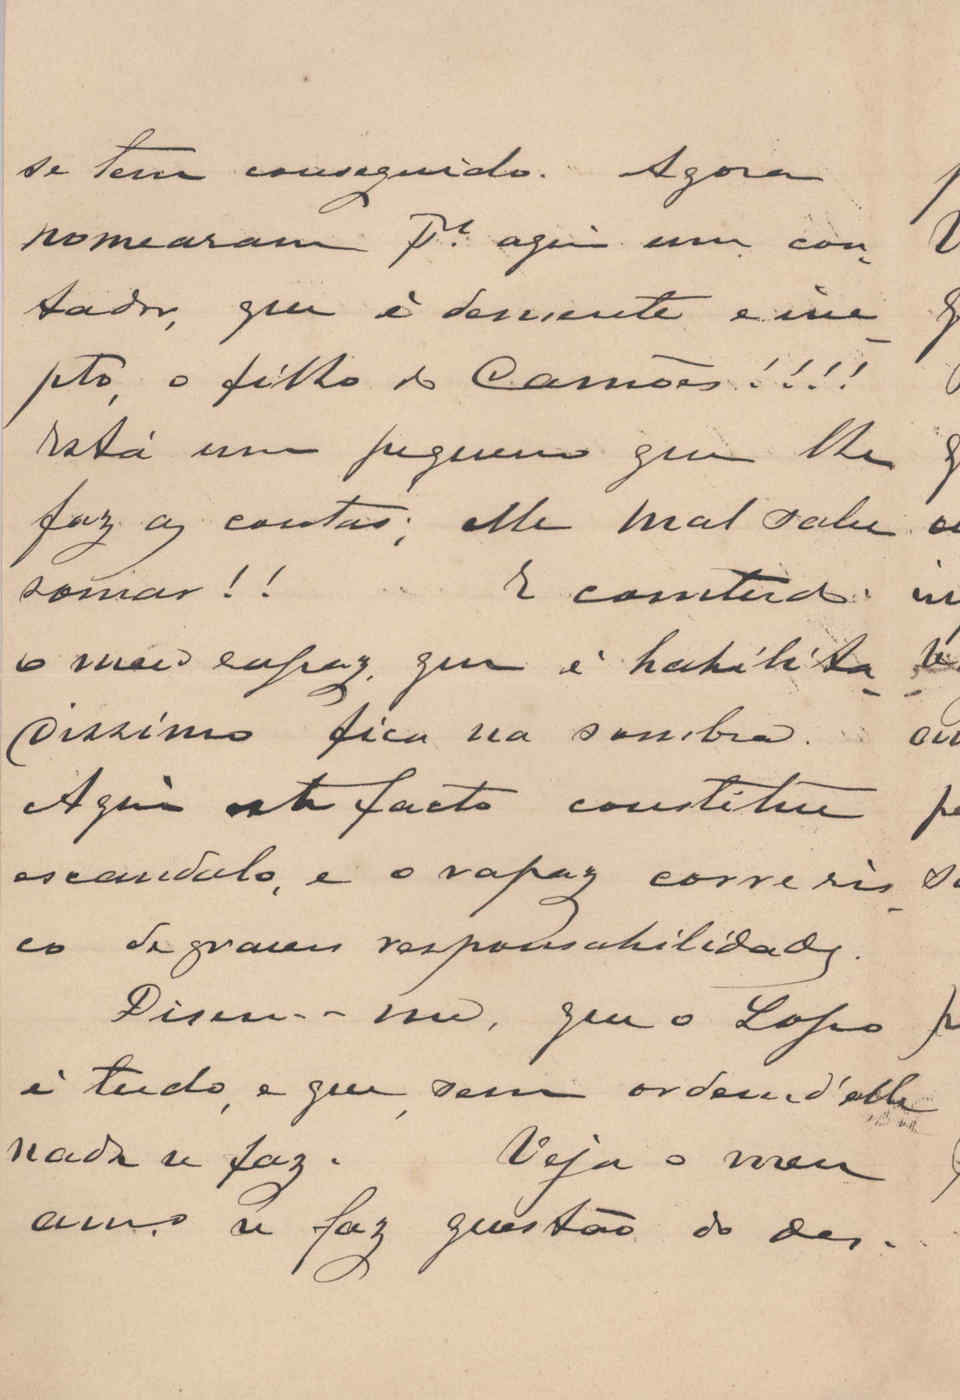 se tem conseguido. Agora
nomearam Pª aqui um con-
tador, que é demente e ine-
pto, o filho do Camões!!!!
Está um pequeno que lhe
faz as contas; elle mal sabe
somar!! E comtudo
o meu rapaz, que é habilita-
dissimo fica na sombra.
Aqui este facto constitue
escandalo, e o rapaz corre ris-
co de graves responsabilidades.
Disem-me, que o Lopo
é tudo, e que sem ordem d'elle
nada se faz. Veja o meu
am.º se faz questão do des-